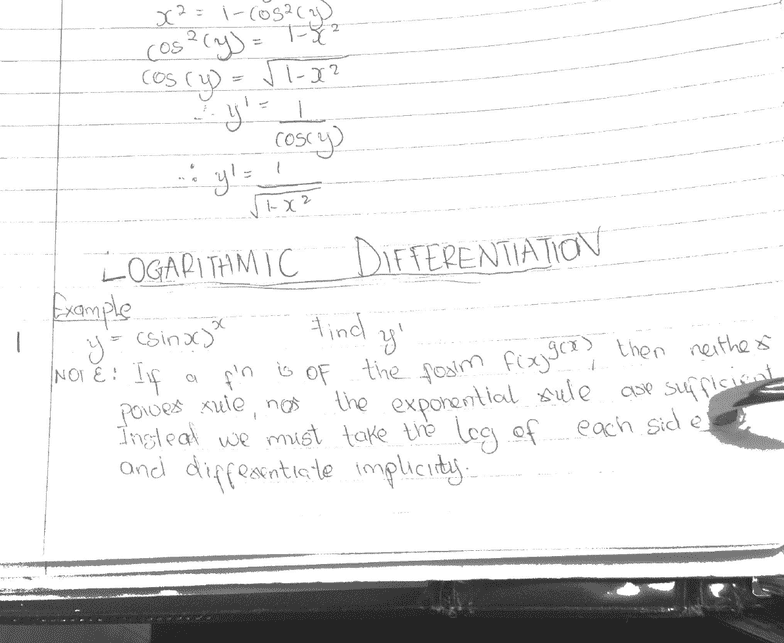 x² = 1-cos²(y)
cos²(y) = 1-x²
cos(y) = √1-x²
∴ y' = 1/cos(y)
∴ y' = 1/√1-x²
LOGARITHMIC DIFFERENTIATION
Example
1 y = (sinx)ˣ find y'
NOTE: If a f'n is OF the form f(x)^g(x), then neither
power rule, nor the exponential rule are sufficient
Instead we must take the log of each side
and differentiate implicity.